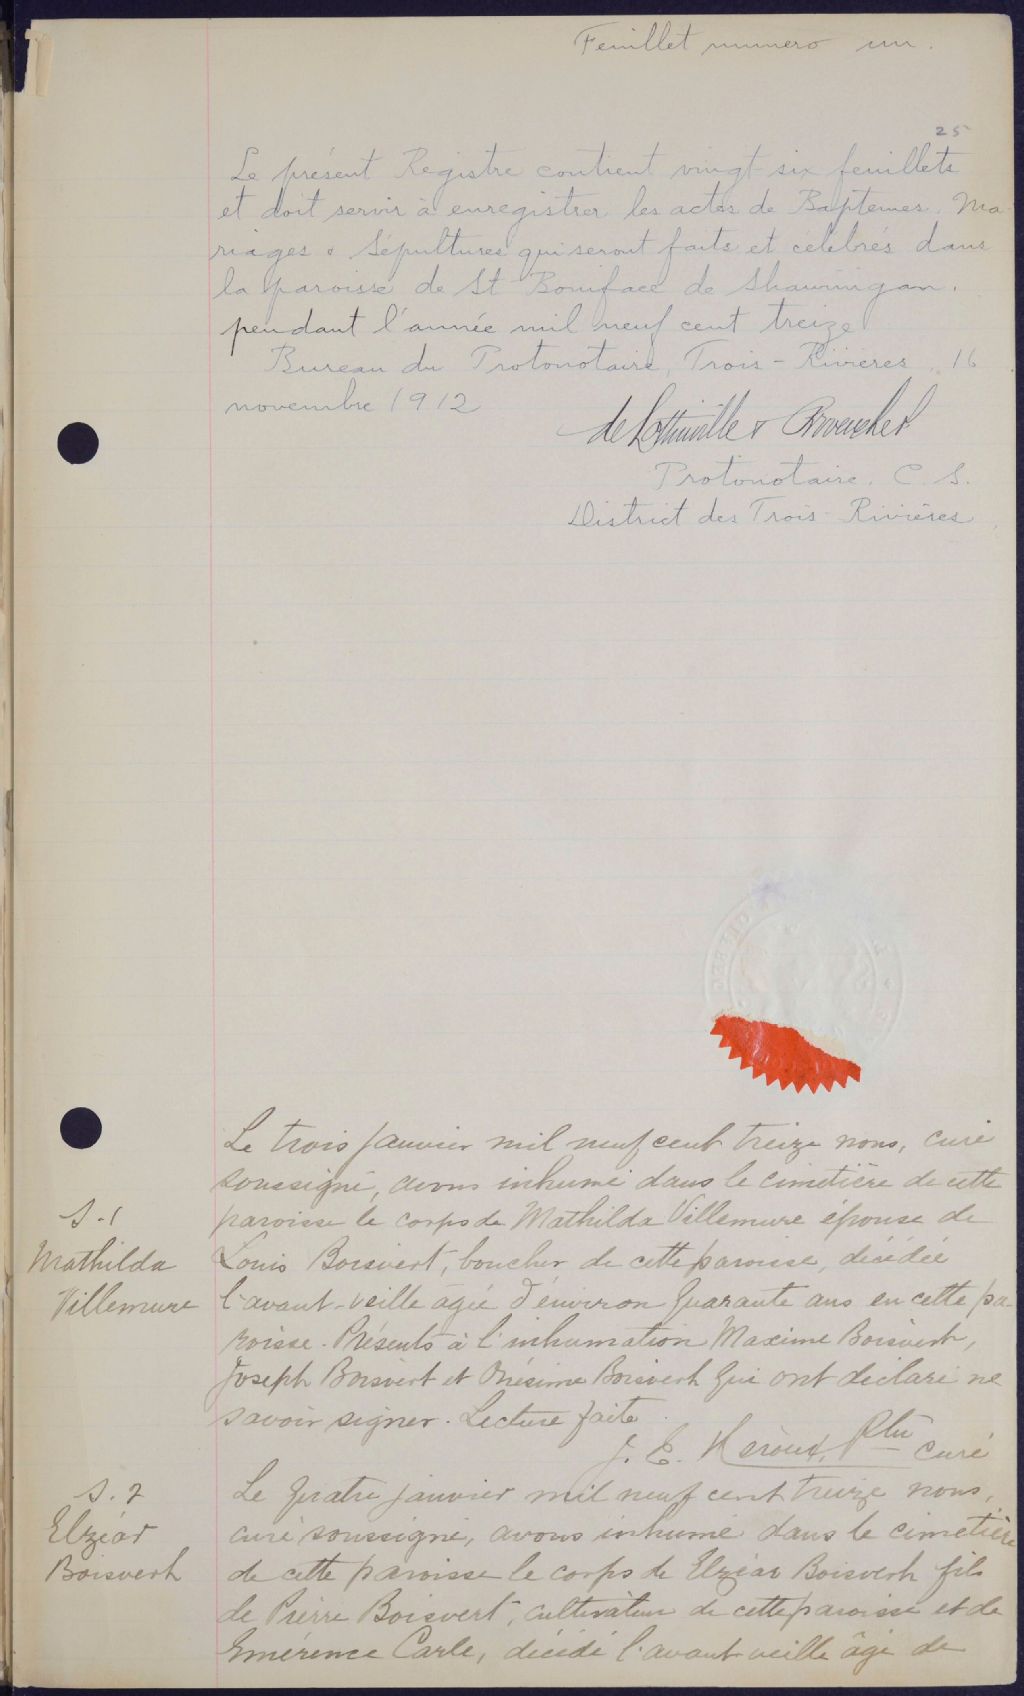 Feuillet numero un.
25
Le présent Registre contient vingt-six feuillets
et doit servir à enregistrer les actes de Baptemes, Ma
riages & Sépultures qui seront faits et célébrés dans
la paroisse de St Boniface de Shawinigan.
pendant l'année mil neuf cent treize
Bureau du Protonotaire, Trois-Rivières, 16
novembre 1912
de Lottinville &
Protonotaire. C. S.
District des Trois-Rivières
Le trois janvier mil neuf cent treize nous, curé
soussigné, avons inhumé dans le cimetière de cette
S. 1
paroisse le corps de Mathilda Villemure épouse de
Mathilda
Louis Boisvert, boucher de cette paroisse, décédée
Villemure
l'avant-veille âgée d'environ quarante ans en cette pa-
roisse. Présents à l'inhumation Maxime Boisvert,
Joseph Boisvert et Onésime Boisvert qui ont déclaré ne
savoir signer. Lecture faite
J. E. Héroux, Ptre curé
S. 2
Le quatre janvier mil neuf cent treize nous,
Elzéar
curé soussigné, avons inhumé dans le cimetière
Boisvert
de cette paroisse le corps de Elzéar Boisvert fils
de Pierre Boisvert, cultivateur de cette paroisse et de
Emérence Carle, décédé l'avant veille âgé de